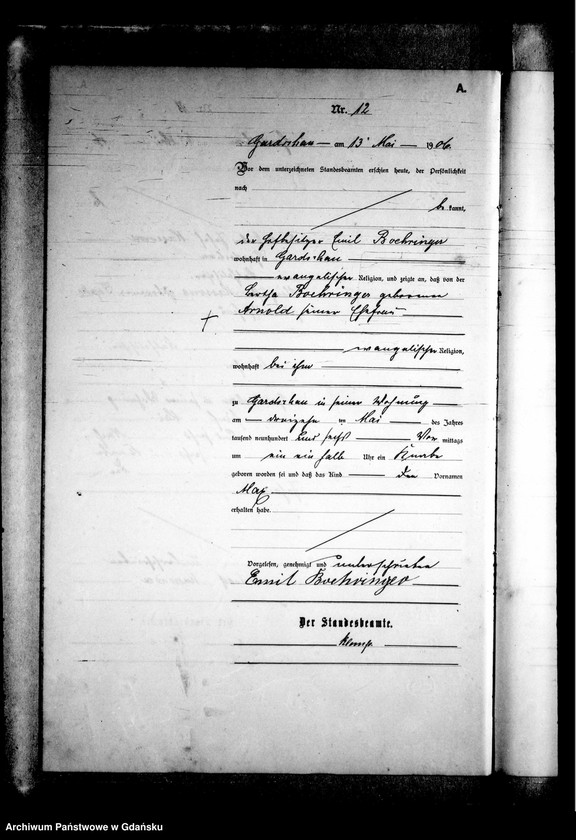 A.
Nr. 12
Gardschau am 13 Mai 1906.
Vor dem unterzeichneten Standesbeamten erschien heute, der Persönlichkeit
nach
be kannt,
der Hofbesitzer Emil Boehringer
wohnhaft in Gardschau
evangelischer Religion, und zeigte an, daß von der
Bertha Boehringer geborenen
Arnold seiner Ehefrau
evangelischer Religion,
wohnhaft bei ihm
zu Gardschau in seiner Wohnung
am dreizehn ten Mai des Jahres
tausend neunhundert und sechs Vor mittags
um ein ein halb Uhr ein Knabe
geboren worden sei und daß das Kind den Vornamen
Max
erhalten habe.
Vorgelesen, genehmigt und unterschrieben
Emil Boehringer
Der Standesbeamte.
Archiwum Państwowe w Gdańsku